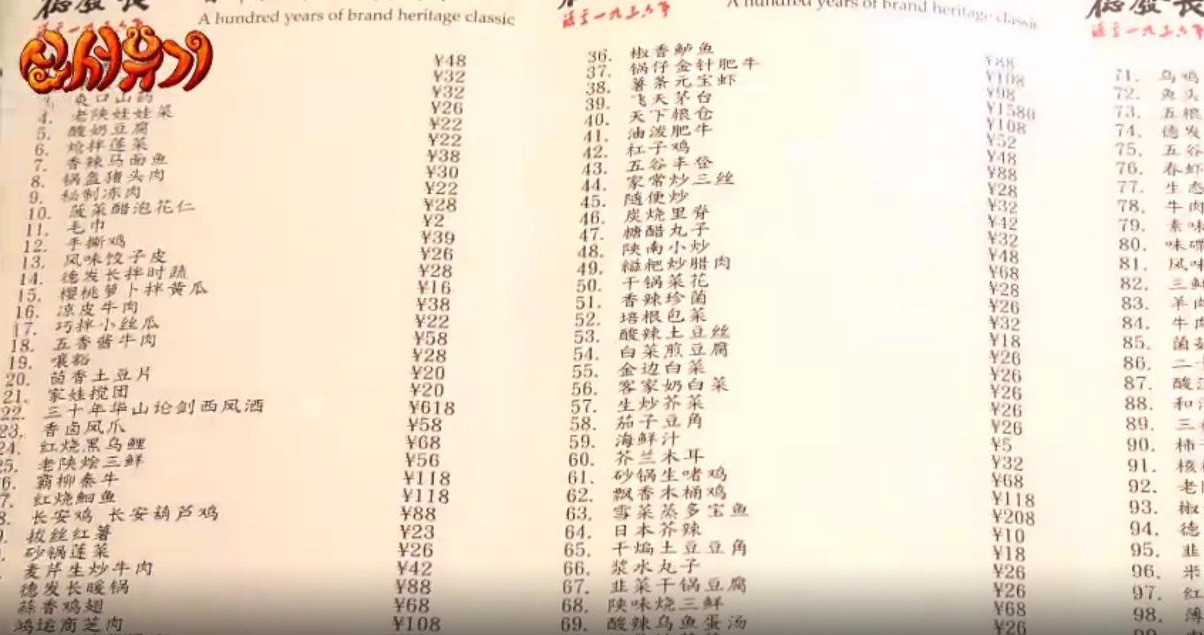 德發長
A hundred years of brand heritage classic
신서유기
¥48
¥32
爽口山药 ¥32
4. 老陕娃娃菜 ¥26
5. 酸奶豆腐 ¥22
6. 炝拌莲菜 ¥22
7. 香辣马面鱼 ¥38
8. 锅盔猪头肉 ¥30
9. 秘制冻肉 ¥22
10. 菠菜醋泡花仁 ¥28
11. 毛巾 ¥2
12. 手撕鸡 ¥39
13. 风味饺子皮 ¥26
14. 德发长拌时蔬 ¥28
15. 樱桃萝卜拌黄瓜 ¥16
16. 凉皮牛肉 ¥38
17. 巧拌小丝瓜 ¥22
18. 五香酱牛肉 ¥58
19. 嚷豁 ¥28
20. 茴香土豆片 ¥20
21. 家娃搅团 ¥20
22. 三十年华山论剑西凤酒 ¥618
23. 香卤凤爪 ¥58
24. 红烧黑乌鲤 ¥68
25. 老陕烩三鲜 ¥56
6. 霸柳秦牛 ¥118
7. 红烧鮰鱼 ¥118
8. 长安鸡 长安葫芦鸡 ¥88
拔丝红薯 ¥23
砂锅莲菜 ¥26
麦芹生炒牛肉 ¥42
德发长暖锅 ¥88
蒜香鸡翅 ¥68
鸿运商芝肉 ¥108
A hundred years of brand heritage classic
36. 椒香鲈鱼 ¥88
37. 锅仔金针肥牛 ¥108
38. 薯条元宝虾 ¥98
39. 飞天茅台 ¥1580
40. 天下粮仓 ¥108
41. 油泼肥牛 ¥52
42. 杠子鸡 ¥48
43. 五谷丰登 ¥88
44. 家常炒三丝 ¥28
45. 随便炒 ¥32
46. 炭烧里脊 ¥42
47. 糖醋丸子 ¥32
48. 陕南小炒 ¥48
49. 糍粑炒腊肉 ¥68
50. 干锅菜花 ¥28
51. 香辣珍菌 ¥26
52. 培根包菜 ¥32
53. 酸辣土豆丝 ¥18
54. 白菜煎豆腐 ¥26
55. 金边白菜 ¥26
56. 客家奶白菜 ¥26
57. 生炒芥菜 ¥26
58. 茄子豆角 ¥26
59. 海鲜汁 ¥5
60. 芥兰木耳 ¥32
61. 砂锅生啫鸡 ¥68
62. 飘香木桶鸡 ¥118
63. 雪菜蒸多宝鱼 ¥208
64. 日本芥辣 ¥10
65. 干煸土豆豆角 ¥18
66. 浆水丸子 ¥26
67. 韭菜干锅豆腐 ¥26
68. 陕味烧三鲜 ¥68
69. 酸辣乌鱼蛋汤 ¥26
德發長
71. 乌鸡
72. 鱼头
73. 五粮
74. 德发
75. 五谷
76. 春虾
77. 生态
78. 牛肉
79. 素味
80. 味
81. 风味
82. 三鲜
83. 羊肉
84. 牛肉
85. 菌菇
86. 二
87. 酸
88. 和
89. 三
90. 柿
91. 核
92. 老
93. 椒
94. 德
95. 韭
96. 米
97. 红
98. 薄